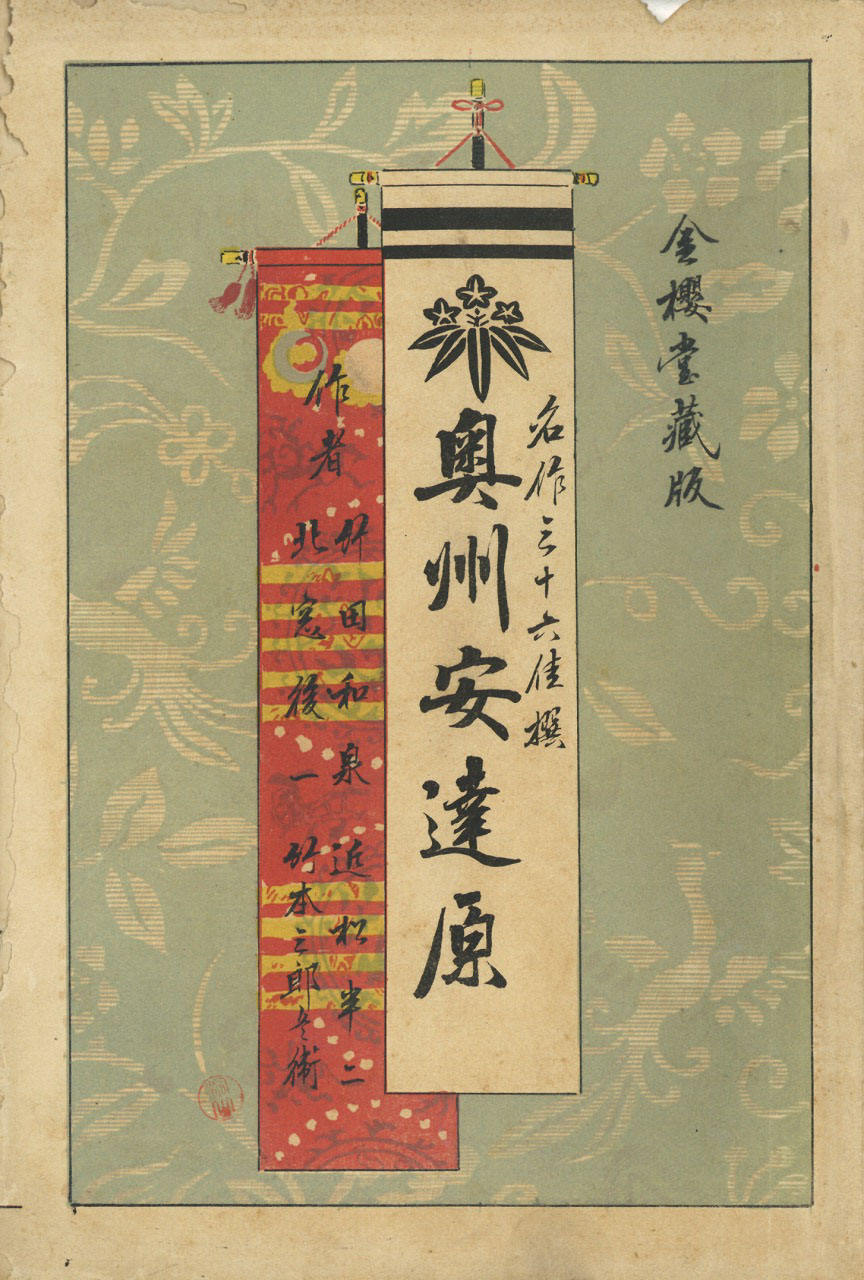 金櫻堂藏版
名作三十六佳撰
奥州安達原
作者
竹田和泉
近松半二
北窓後一
竹本三郎兵衛